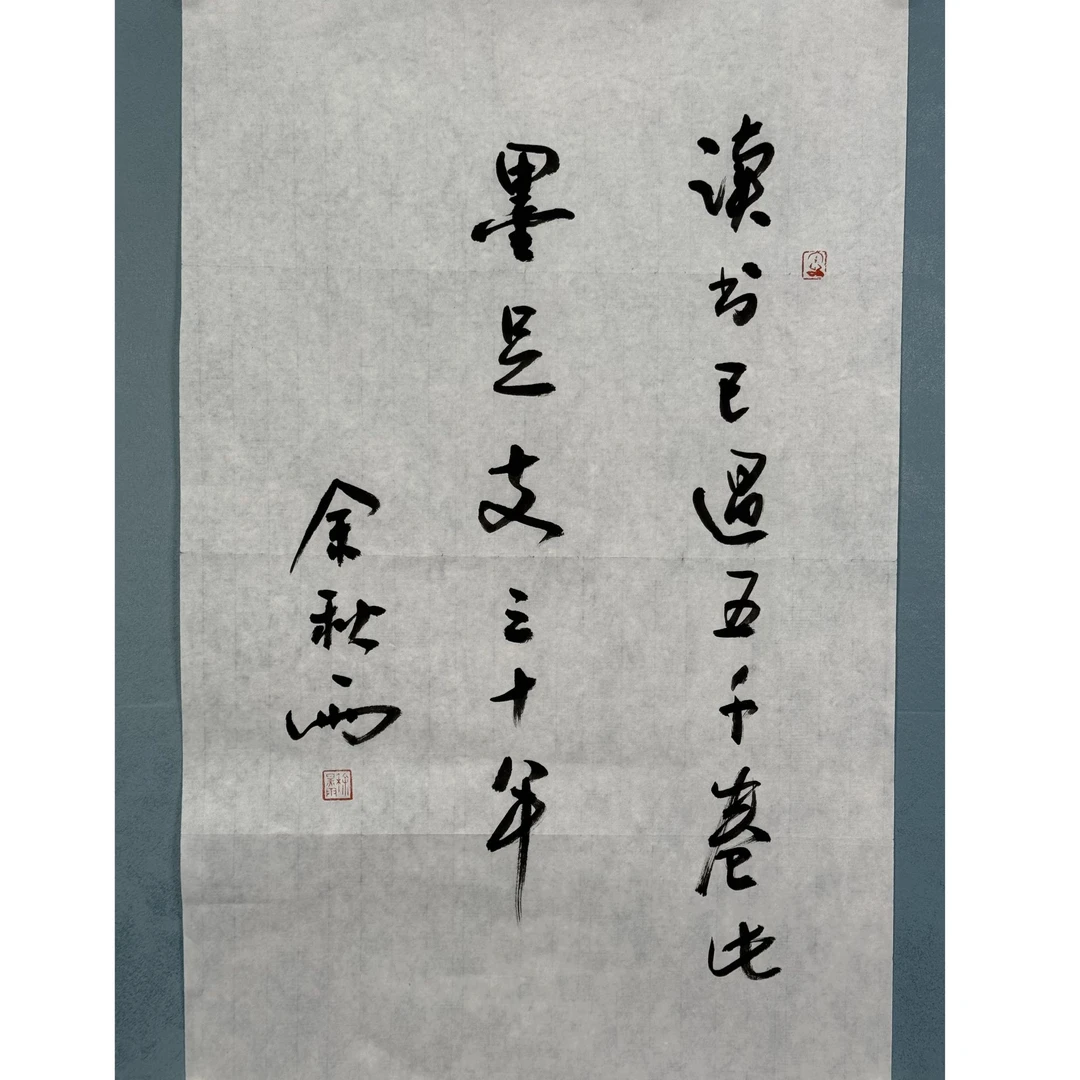 读书已过五千卷此
墨足支三十年
余秋雨